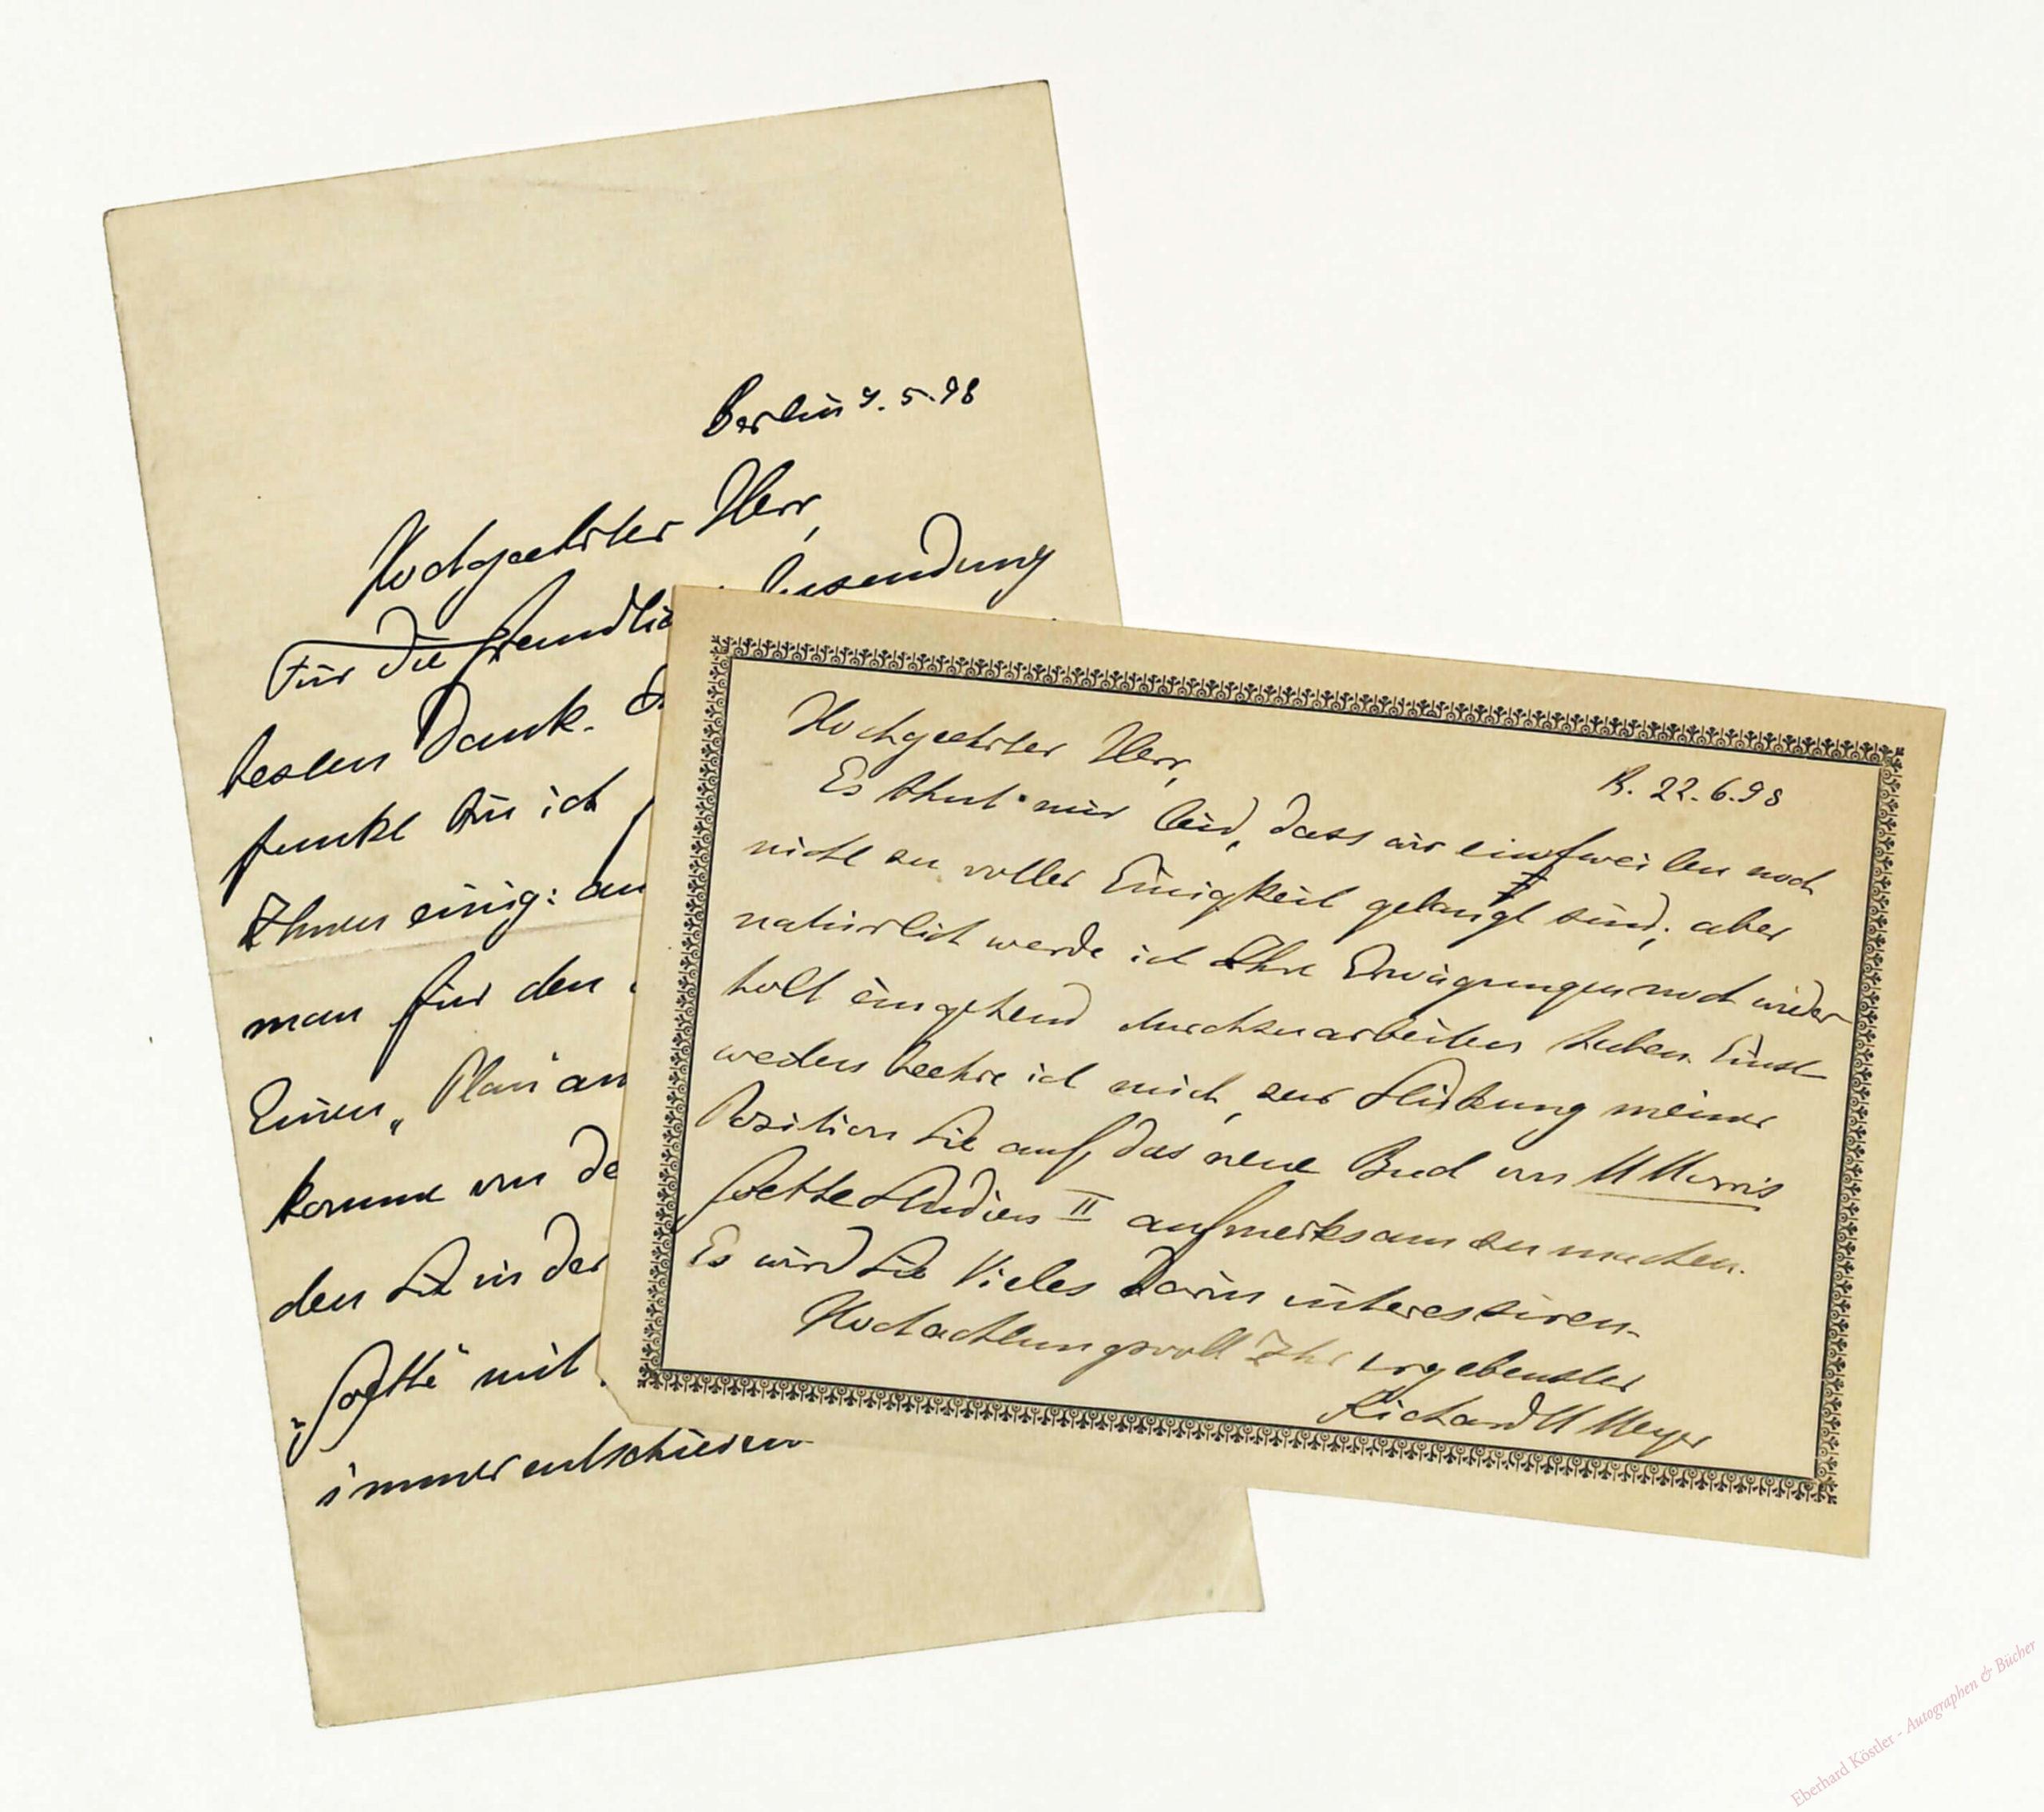 Berlin 7. 5. 98
Hochgeehrter Herr,
Für die freundlic Zusendung
besten Dank.
punkt bin ich
Ihnen einig: an
man für den
Einen „Plan" an
komme von de
den Sie in der
„Goethe" mit
immer entschieden
Hochgeehrter Herr,
B. 22. 6. 98
Es thut mir leid, dass wir einstweilen noch
nicht zu voller Einigkeit gelangt sind; aber
natürlich werde ich Ihre Erwägungen noch wieder-
holt eingehend durchzuarbeiten haben. Einst-
weilen beehre ich mich, zur Stützung meiner
Position Sie auf das neue Buch von M Morris
Goethe Studien II aufmerksam zu machen.
Es wird Sie Vieles darin interessiren.
Hochachtungsvoll Ihr ergebenster
Richard M Meyer
Eberhard Köstler - Autographen & Bücher